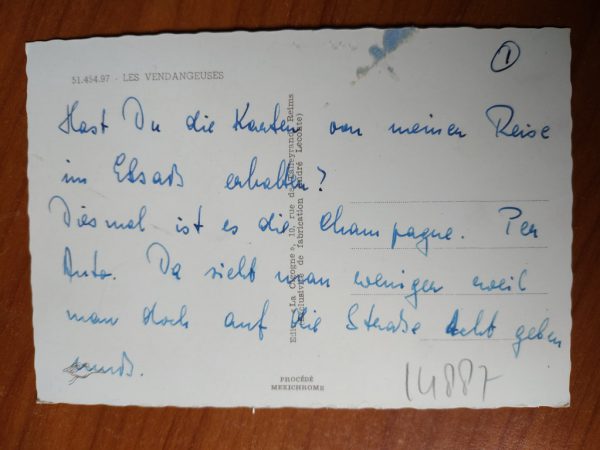 51.454.97 - LES VENDANGEUSES
1
Hast Du die Karten von meiner Reise
im Elsaß erhalten?
Diesmal ist es die Champagne. Per
Auto. Da sieht man weniger weil
man doch auf die Straße acht geben
muß.
Edit. « La Cigogne », 10, rue de Reims
Exclusivité de fabrication André Leconte)
PROCÉDÉ
MEXICHROME
14887